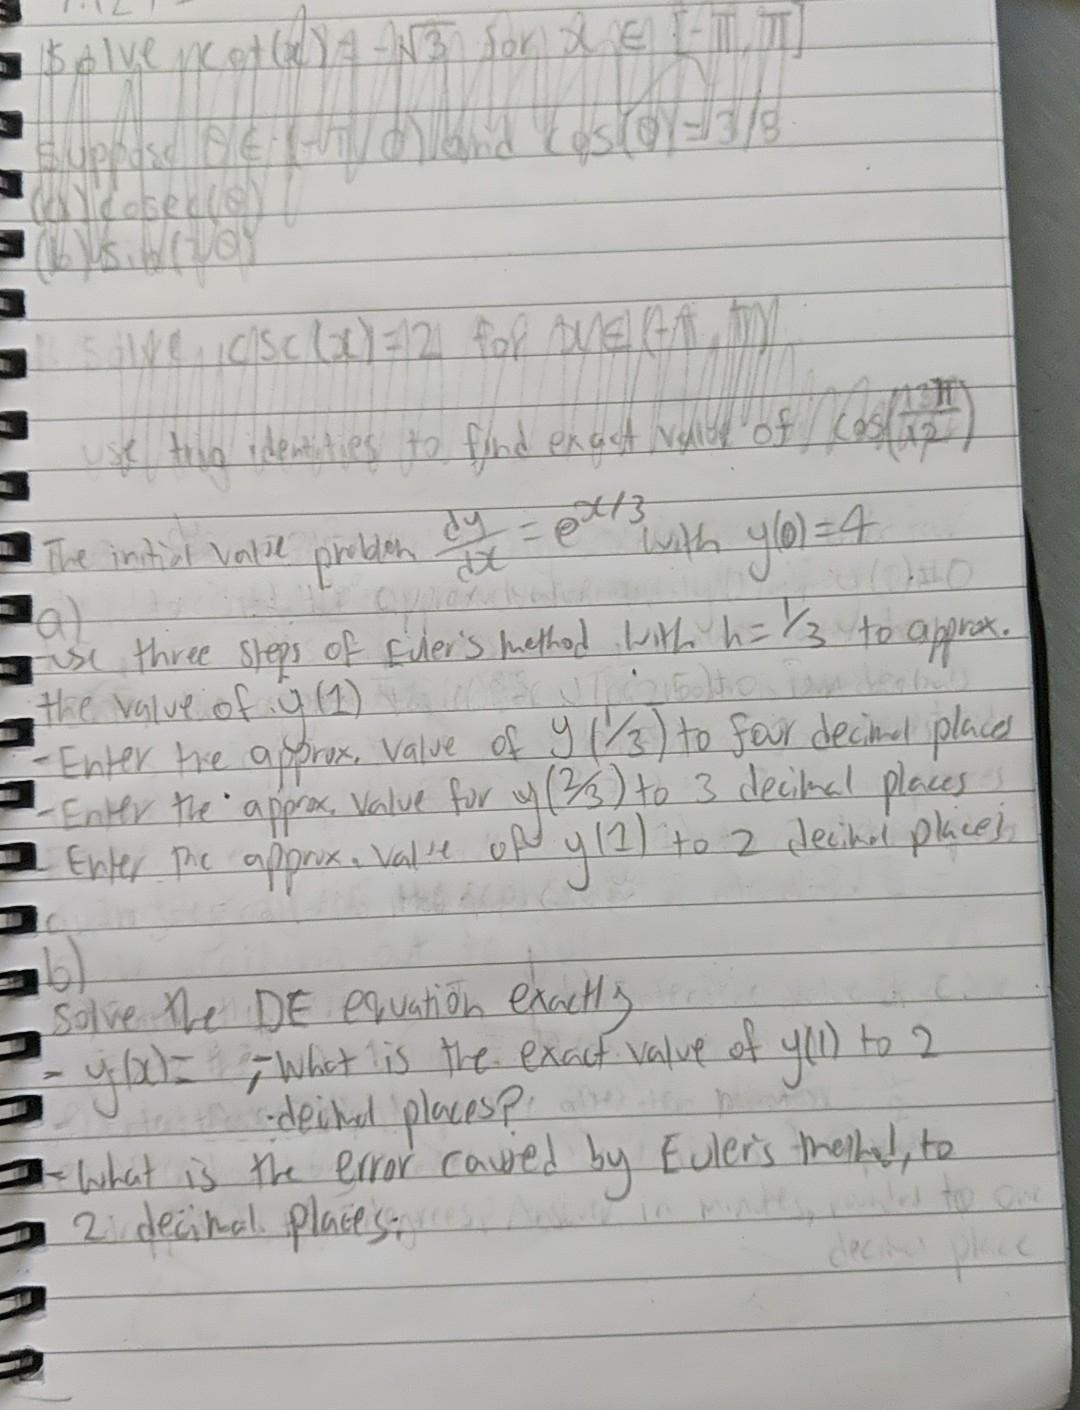 Solve cot(x) = -√3 for x ∈ [-π, π]
Suppose θ ∈ (-π, 0) and cos(θ) = 3/8
(a) cosec(θ)
(b)
Solve csc(x) = 2 for x ∈ (-π, π)
use trig identities to find exact value of cos(13π/12)
The initial value problem dy/dx = e^x/3 with y(0) = 4
a)
use three steps of Euler's method with h = 1/3 to approx.
the value of y(1)
- Enter the approx. value of y(1/3) to four decimal places
- Enter the approx. value for y(2/3) to 3 decimal places
- Enter the approx. value of y(1) to 2 decimal places
b)
Solve the DE equation exactly
- y(x) = ; - What is the exact value of y(1) to 2
decimal places?
- What is the error caused by Euler's method, to
2 decimal places.